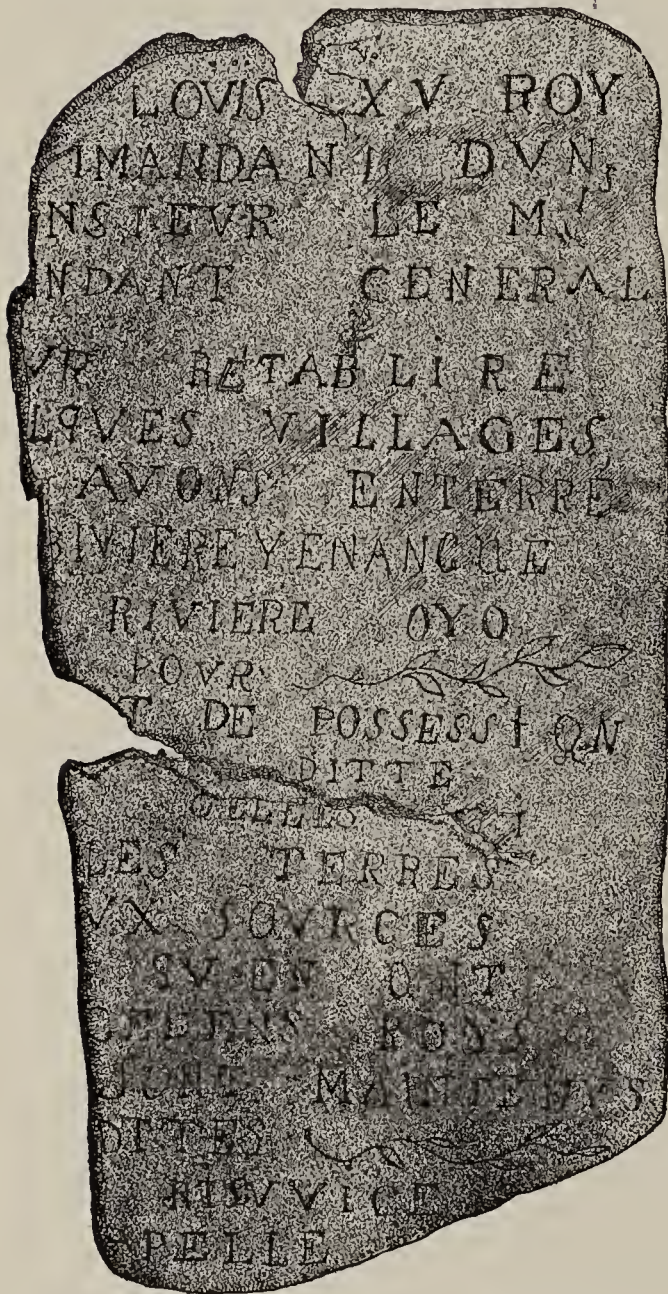 LOVIS XV ROY
IMANDANT DVN
NSTEVR LE M
NDANT CENERAL
VR RÉTABLIRE
LQVES VILLAGES
AVONS ENTERRÉ
RIVIERE YENANGUE
RIVIERE OYO
POVR
T DE POSSESSION
DITTE
LES TERRES
VX SOVRCES
QV EN ONT
DITES
RISVVICE
PELLE